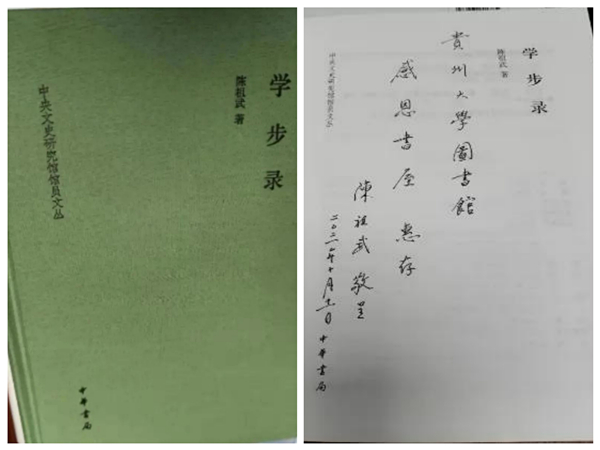 学步录
陈祖武 著
中央文史研究馆馆员文丛
中華書局
学步录
陈祖武 著
貴州大學圖書館
感恩書屋 惠存
陳祖武 敬呈
中央文史研究馆馆员文丛
中華書局